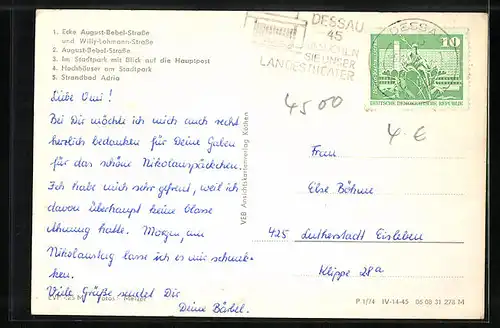 1. Ecke August-Bebel-Straße
und Willy-Lohmann-Straße
2. August-Bebel-Straße
3. Im Stadtpark mit Blick auf die Hauptpost
4. Hochhäuser am Stadtpark
5. Strandbad Adria
Liebe Omi!
Bei Dir möchte ich mich auch recht
herzlich bedanken für Deine Gaben
für das schöne Nikolauspäckchen.
Ich habe mich sehr gefreut, weil ich
davon überhaupt keine blasse
Ahnung hatte. Morgen, am
Nikolaustag lasse ich es mir schmek-
ken.
Viele Grüße sendet Dir
Deine Bärbel.
Fotos: Melzer
VEB Ansichtskartenverlag Köthen
DESSAU
45
BESUCHEN
SIE UNSER
LANDESTHEATER
DESSAU
10
DEUTSCHE DEMOKRATISCHE REPUBLIK
4500
4.€
Frau
Else Böhme
425 Lutherstadt Eisleben
Klippe 28a
P 1/74 IV-14-45 05 03 31 276 M